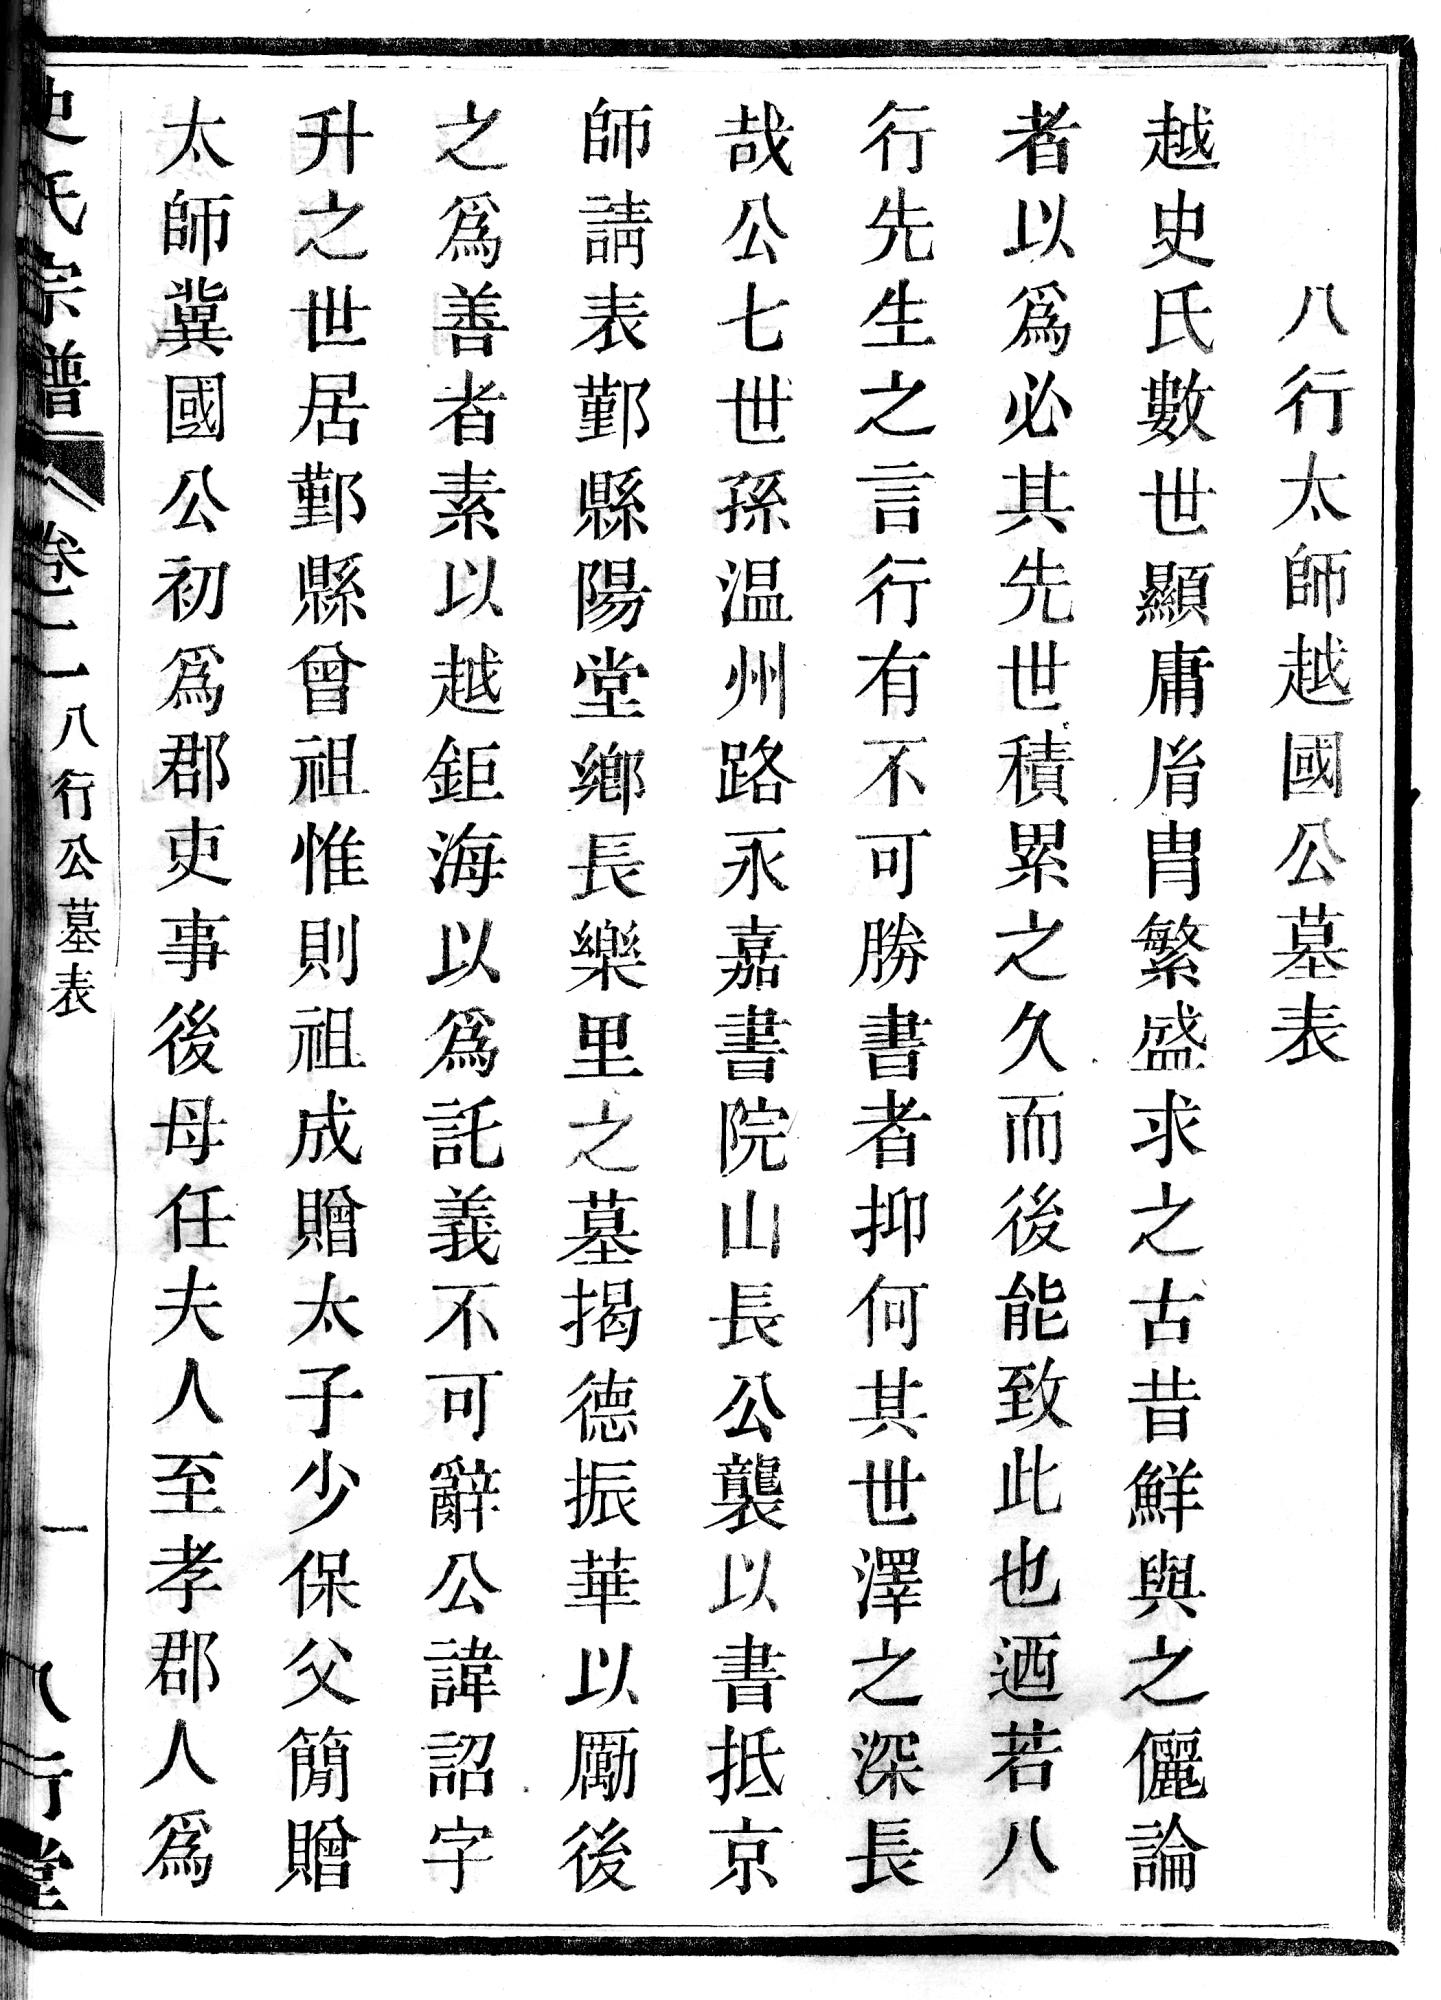 八行太師越國公墓表
越史氏數世顯庸胄胄繁盛求之古昔鮮與之儷論
者以爲必其先世積累之久而後能致此也迺若八
行先生之言行有不可勝書者抑何其世澤之深長
哉公七世孫温州路永嘉書院山長公襲以書抵京
師請表鄞縣陽堂鄉長樂里之墓揭德振華以勵後
之爲善者素以越鉅海以爲託義不可辭公諱詔字
升之世居鄞縣曾祖惟則祖成贈太子少保父簡贈
太師冀國公初爲郡吏事後母任夫人至孝郡人爲
史氏宗譜 卷二 八行公墓表 一 八行堂